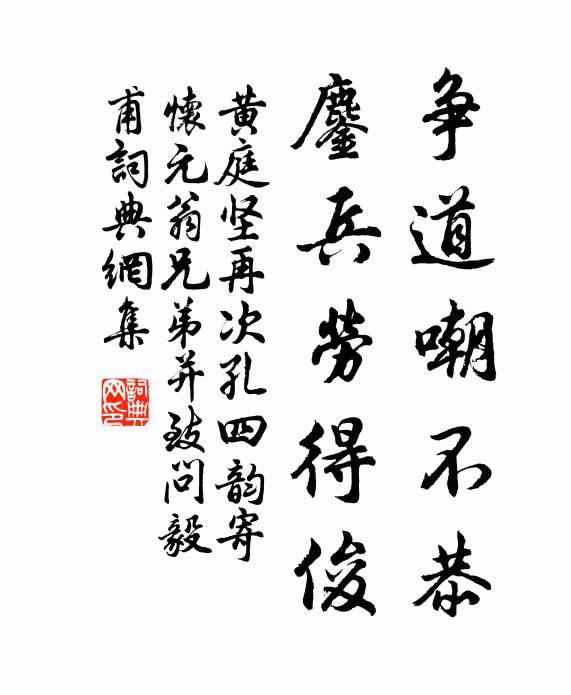 争道嘲不恭
鏖兵劳得俊
黄庭坚再次孔四韵寄
懷元翁兄弟并致问毅
甫詞典網集
詞典
网印